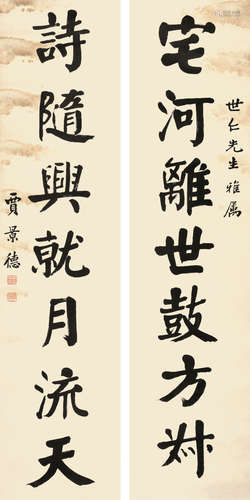 世仁先生雅属
宅河離世鼓方
詩隨興就月流天
賈景德